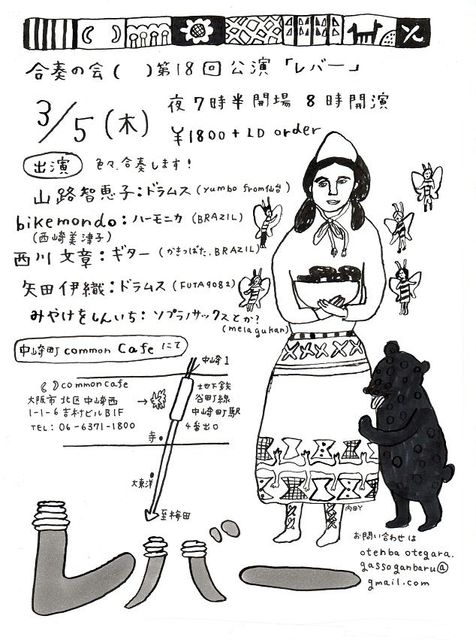 合奏の会(　)第18回公演「レバー」
3/5(木)
夜7時半開場 8時開演
¥1800+1D order
出演 色々、合奏します!
山路智恵子:ドラムス(yumbo from仙台)
bikemondo:ハーモニカ(BRAZIL)
(西崎美津子)
西川文章:ギター(かきつばた、BRAZIL)
矢田伊織:ドラムス(FUTA9082)
みやけをしんいち:ソプラノサックスとか?
(melagukan)
中崎町common Cafeにて
common cafe
大阪市北区中崎西
1-1-6 吉村ビルB1F
TEL: 06-6371-1800
中崎1
地下鉄
谷町線
中崎町駅
4番出口
寺
大東洋
至梅田
お問い合わせは
otenba otegara.
gassoganbaru@
gmail.com
レバー